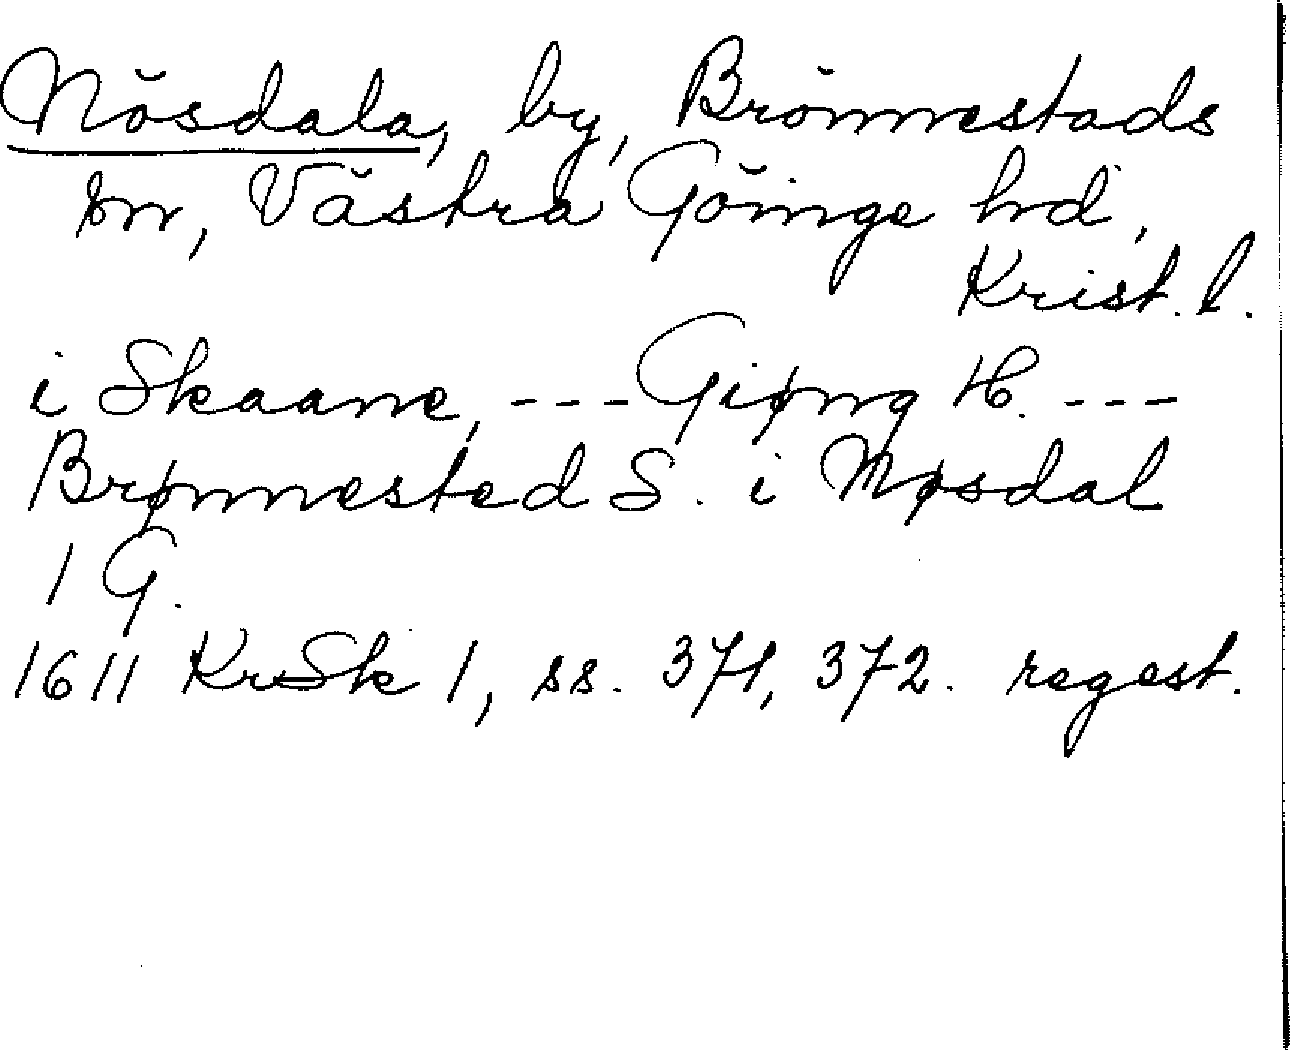 Nösdala, by, Brönnestads
sn, Västra Göinge hd,
Krist. l.
i Skaane, --- Giøng H. ---
Brønnested S. i Nøsdal
1 G.
1611 KrSk 1, ss. 371, 372. regest.